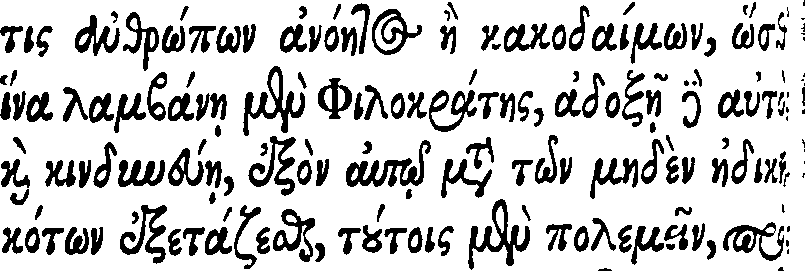 τις ἀνθρώπων ἀνόητος ἢ κακοδαίμων, ὥσθ'
ἵνα λαμβάνῃ μὲν Φιλοκράτης, ἀδοξῇ δὲ αὐτὸς
καὶ κινδυνεύῃ, ἐξὸν αὐτῷ μετὰ τῶν μηδὲν ἠδικη
κότων ἐξετάζεσθαι, τούτοις μὲν πολεμεῖν, πρὸς